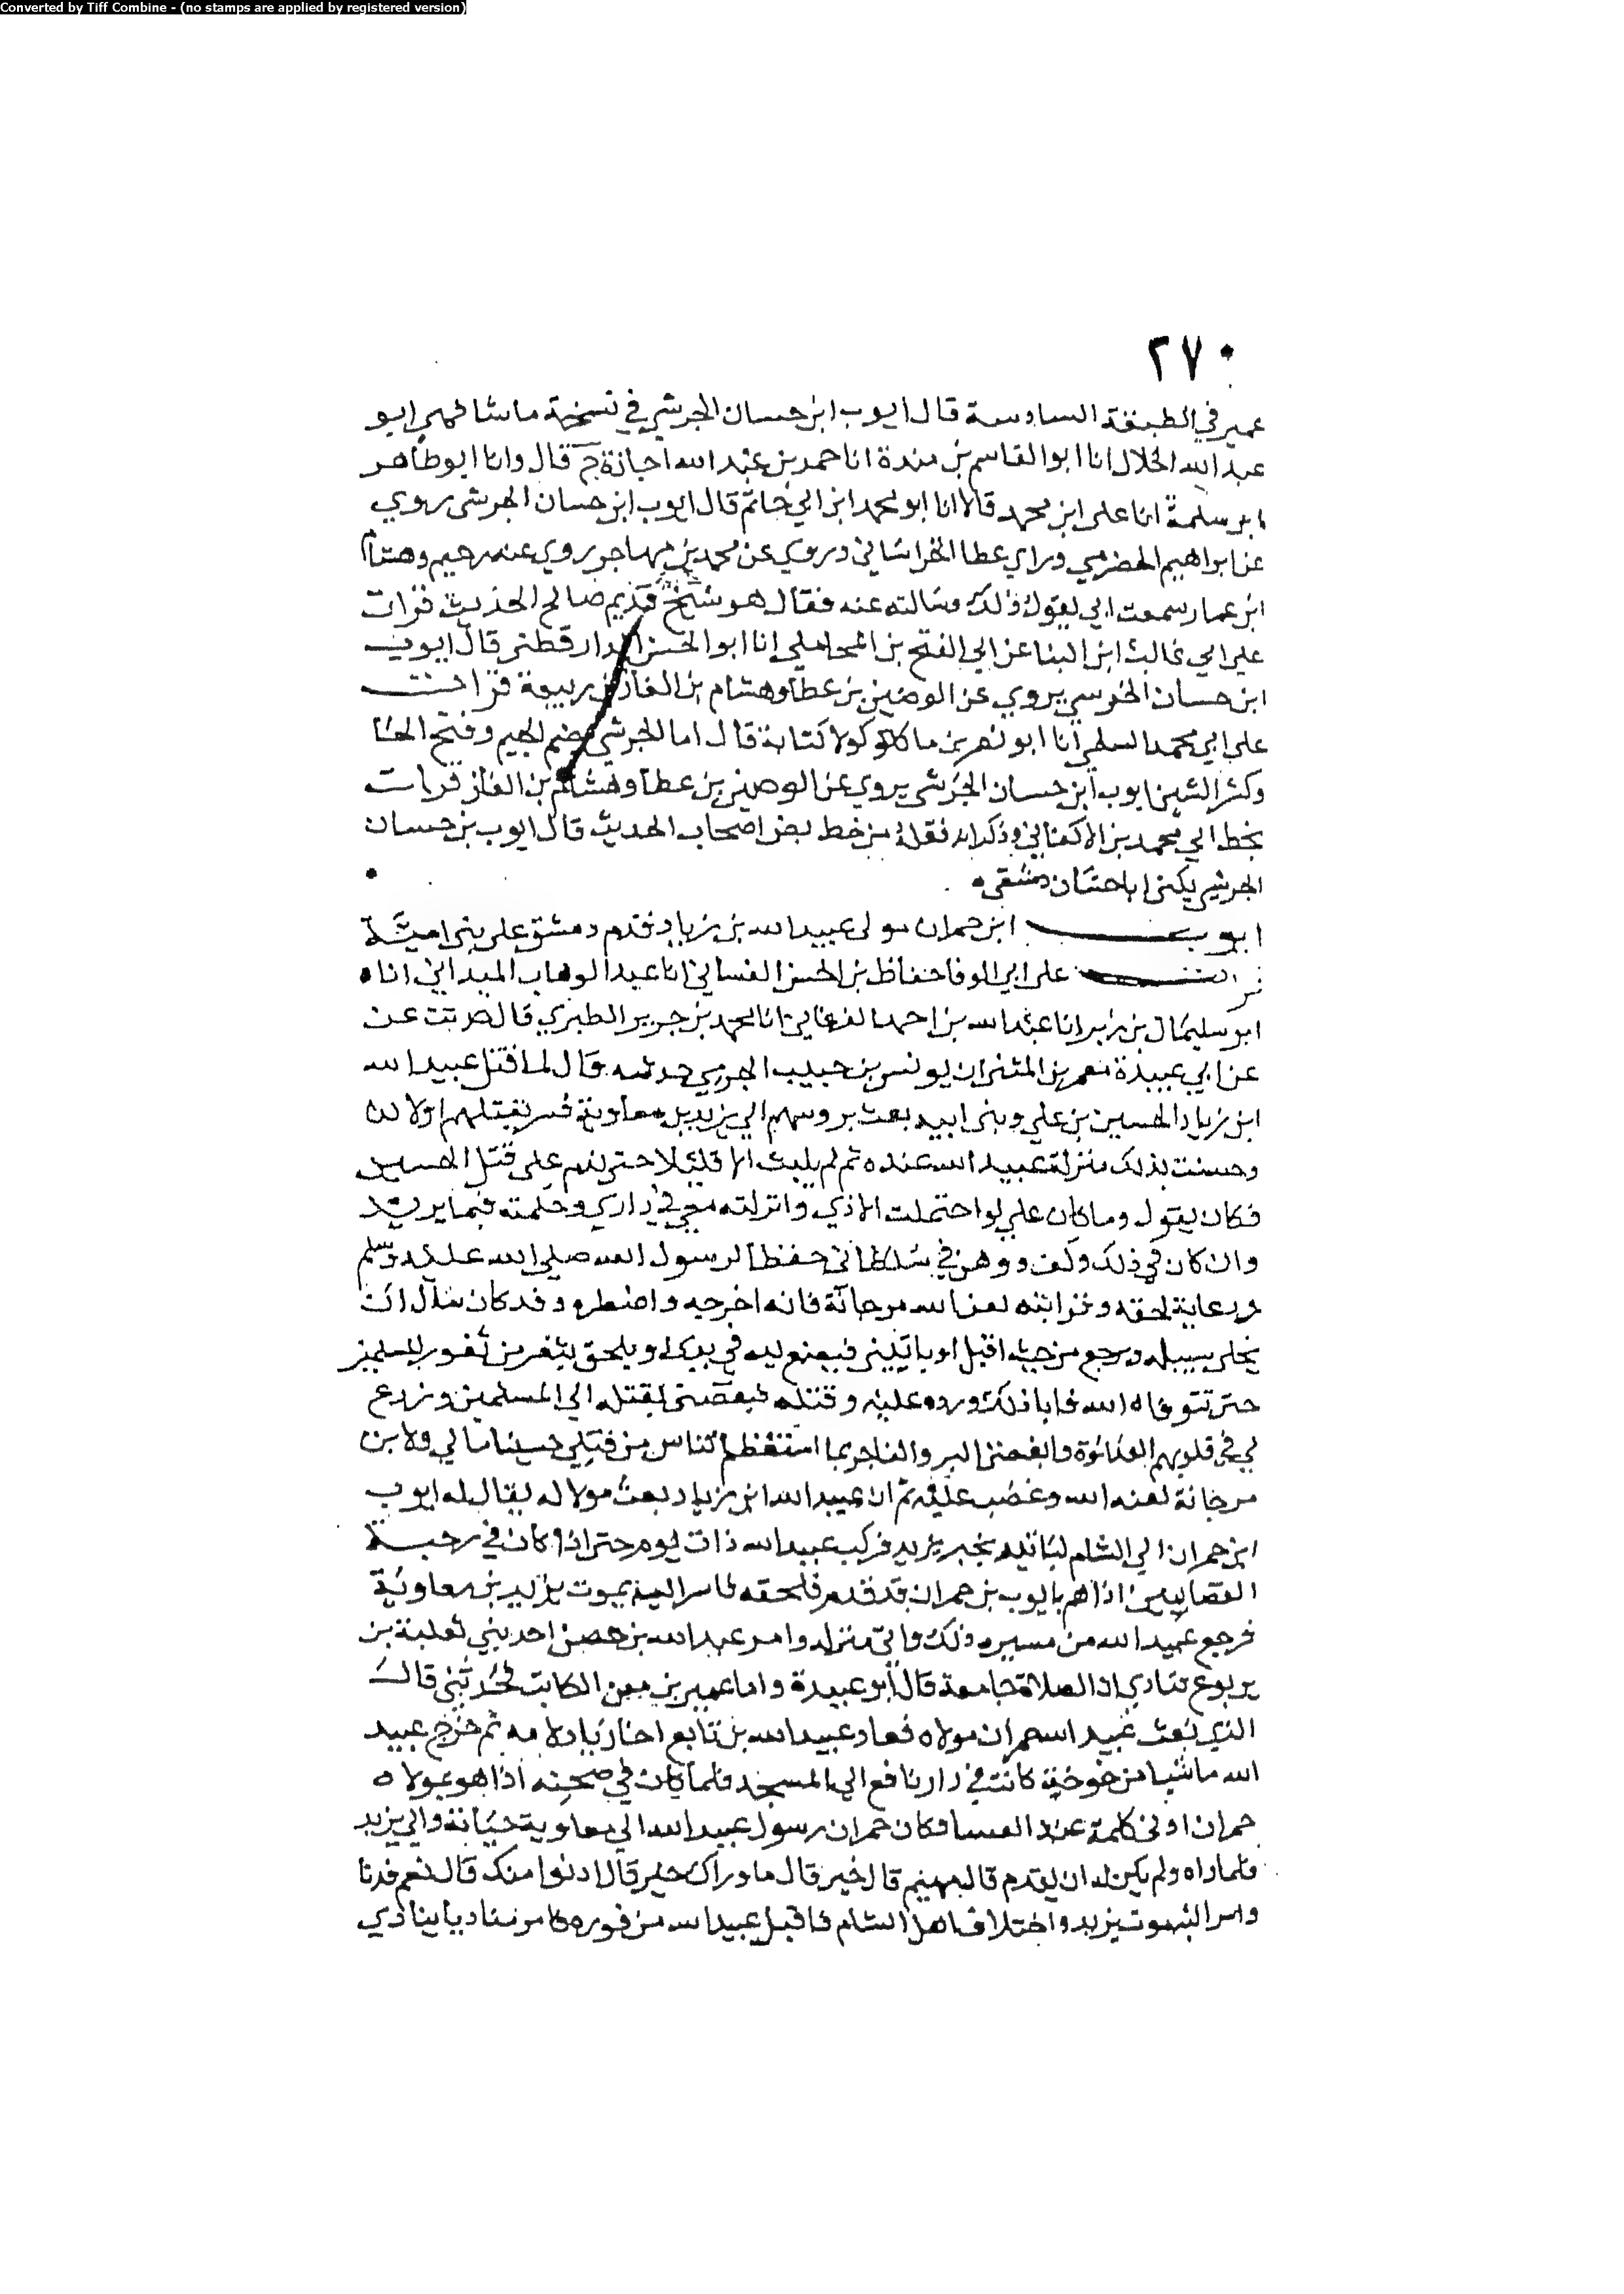 Converted by Tiff Combine - (no stamps are applied by registered version)
٢٧٠
عمير في الطبقة السادسة قال ايوب ابن حسان الجرشي في نسخة ما شافهني ابو
عبد الله الخلال انا ابو القاسم بن مندة انا حمد بن عبد الله اجازة ح قال وانا ابو طاهر
ابن سلمة انا على ابن محمد قالا انا ابو محمد ابن ابي حاتم قال ايوب ابن حسان الجرشي روي
عن ابراهيم الحضرمي وراي عطا الخراساني وروي عن محمد بن مهاجر روي عنه دحيم وهشام
ابن عمار سمعت ابي يقول ذلك وسالته عنه فقال هو شيخ قديم صالح الحديث قرات
على ابي غالب ابن البنا عن ابي الفتح بن المحاملي انا ابو الحسن الدارقطني قال ايوب
ابن حسان الخرسي يروي عن الوضين بن عطا وهشام بن الغاز بن ربيعة قرات
على ابي محمد السلمي انا ابو نصر بن ماكولا كتابة قال اما الجرشي بضم الجيم وفتح
وكسر الشين ايوب ابن حسان الجرشي يروي عن الوضين بن عطا وهشام بن الغاز قرات
بخط ابي محمد بن الاكفاني وذكر انه نقله من خط بعض اصحاب الحديث قال ايوب بن حسان
الجرشي يكنى ابا حسان دمشقي
ايوب ابن حمران مولى عبيد الله بن زياد قدم دمشق على بني امية
على ابي الوفا حفاظ بن الحسن الغساني انا عبد الوهاب الميداني انا
ابو سليمان بن زبر انا عبد الله بن احمد الفرغاني انا محمد بن جرير الطبري قال حدثت عن
عن ابي عبيدة معمر بن المثنى ان يونس بن حبيب الجرمي حدثه قال لما قتل عبيد الله
ابن زياد الحسين بن علي وبني ابيه بعث بروسهم الي يزيد بن معاوية فسر بقتلهم اولا
وحسنت بذلك منزلة عبيد الله عنده ثم لم يلبث الا قليلا حتى ندم على قتل الحسين
فكان يقول وما كان علي لو احتملت الاذي وانزلته معي في داري وحكمته فيما يريد
وان كان في ذلك وكف ووهن في سلطاني حفظا لرسول الله صلى الله عليه وسلم
ورعاية لحقه وقرابته لعن الله مرجانة فانه اخرجه واضطره وقد كان سال ان
يخلي سبيله ويرجع من حيث اقبل او ياتيني فيضع يده في يدي او يلحق بثغر من ثغور المسلمين
حتى تتوفاه الله فابا ذلك ورده عليه وقتله فبغضني بقتله الي المسلمين وزرع
لي في قلوبهم العداوة فابغضني البر والفاجر بما استعظم الناس من قتلي حسينا مالي ولابن
مرجانة لعنه الله وغضب عليه ثم ان عبيد الله ابن زياد بعث مولا له يقال له ايوب
ابن حمران الي الشام لياتيه بخبر يزيد فركب عبيد الله ذات يوم حتى اذا كان في رحبة
القصابين اذا هم بايوب بن حمران قد قدم فلحقه فاسر اليه بموت يزيد بن معاوية
فرجع عبيد الله من مسيره ذلك فاتى منزله وامر عبد الله بن حصن احد بني ثعلبة بن
يربوع فنادي اذ الصلاة جامعة قال ابو عبيدة واما عمير بن معن الكاتب فحدثني قال
الذي بعث عبيد الله حمران مولاه فعاد عبيد الله بن نافع اخا زياد لامه ثم خرج عبيد
الله ماشيا من خوخة كانت في دار نافع الي المسجد فلما كان في صحنه اذا هو بمولاه
حمران ادنى ظلمة عند المسا وكان حمران رسول عبيد الله الي معاوية حياته والي يزيد
فلما راه ولم يكن له ان يقدم قال مهيم قال خير قال ما وراك قال ادنوا منك قال نعم فدنا
واسر اليه موت يزيد واختلاف اهل الشام فاقبل عبيد الله من فوره فامر مناديا ينادي